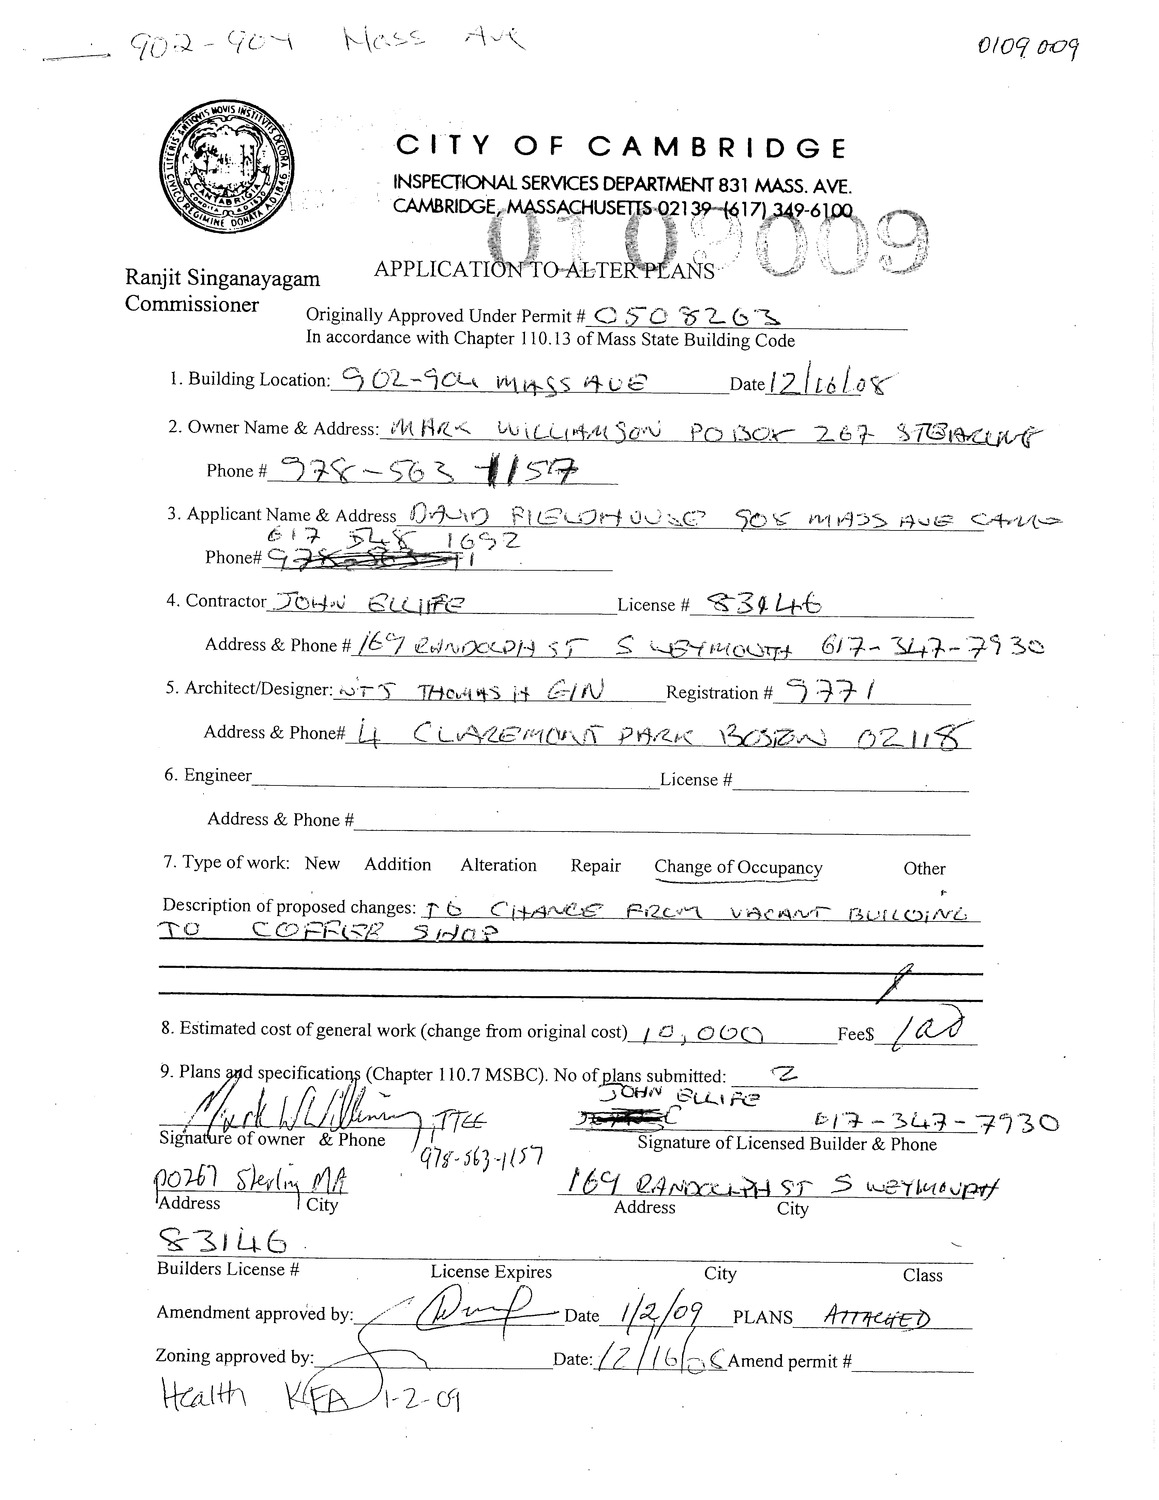 902-904 Mass Ave
0109009
CIVICO REGIMINE DONATA AD 1846
LITERIS ANTIQUIS NOVIS INSTITUTIS DECORA
CANTABRIGIA
CONDITA AD 1630
CITY OF CAMBRIDGE
INSPECTIONAL SERVICES DEPARTMENT 831 MASS. AVE.
CAMBRIDGE, MASSACHUSETTS 02139 (617) 349-6100
0109009
Ranjit Singanayagam
Commissioner
APPLICATION TO ALTER PLANS
Originally Approved Under Permit # 0508263
In accordance with Chapter 110.13 of Mass State Building Code
1. Building Location: 902-904 MASS AVE Date 12/16/08
2. Owner Name & Address: MARK WILLIAMSON PO BOX 267
Phone # 978-563-1157
3. Applicant Name & Address DAVID FIELDHOUSE 908 MASS AVE CAMB
617 548 1692
Phone#
4. Contractor JOHN ELLIFE License # 83146
Address & Phone # 169 RANDOLPH ST S WEYMOUTH 617-347-7930
5. Architect/Designer: THOMAS H GIN Registration # 9771
Address & Phone# 4 CLAREMONT PARK BOSTON 02118
6. Engineer License #
Address & Phone #
7. Type of work: New Addition Alteration Repair Change of Occupancy Other
Description of proposed changes: TO CHANGE FROM VACANT BUILDING
TO COFFEE SHOP
8. Estimated cost of general work (change from original cost) 10,000 Fee$ 100
9. Plans and specifications (Chapter 110.7 MSBC). No of plans submitted: 2
JOHN ELLIFE
TTEE 617-347-7930
Signature of owner & Phone Signature of Licensed Builder & Phone
978-563-1157
PO267 Sterling MA 169 RANDOLPH ST S WEYMOUTH
Address City Address City
83146
Builders License # License Expires City Class
Amendment approved by: Date 1/2/09 PLANS ATTACHED
Zoning approved by: Date: 12/16/08 Amend permit #
Health KFA 1-2-09